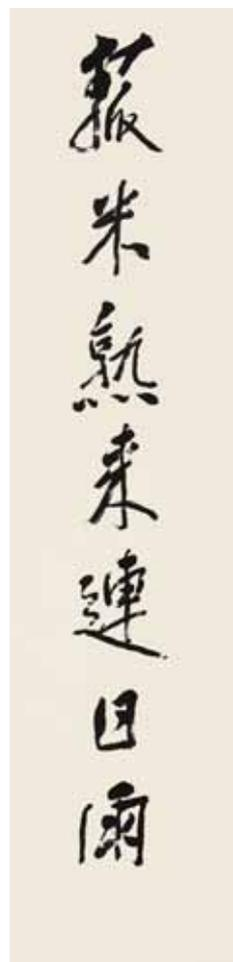 菰米熟来連日雨